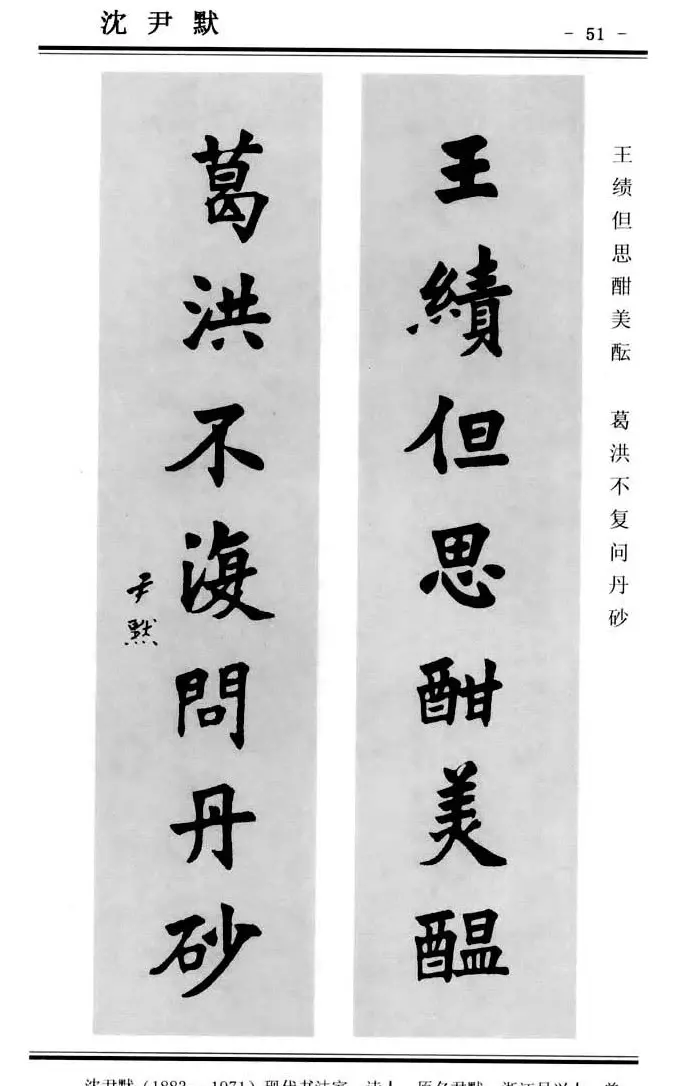 沈尹默
- 51 -
王績但思酣美醖
葛洪不復問丹砂
尹默
王绩但思酣美酝 葛洪不复问丹砂